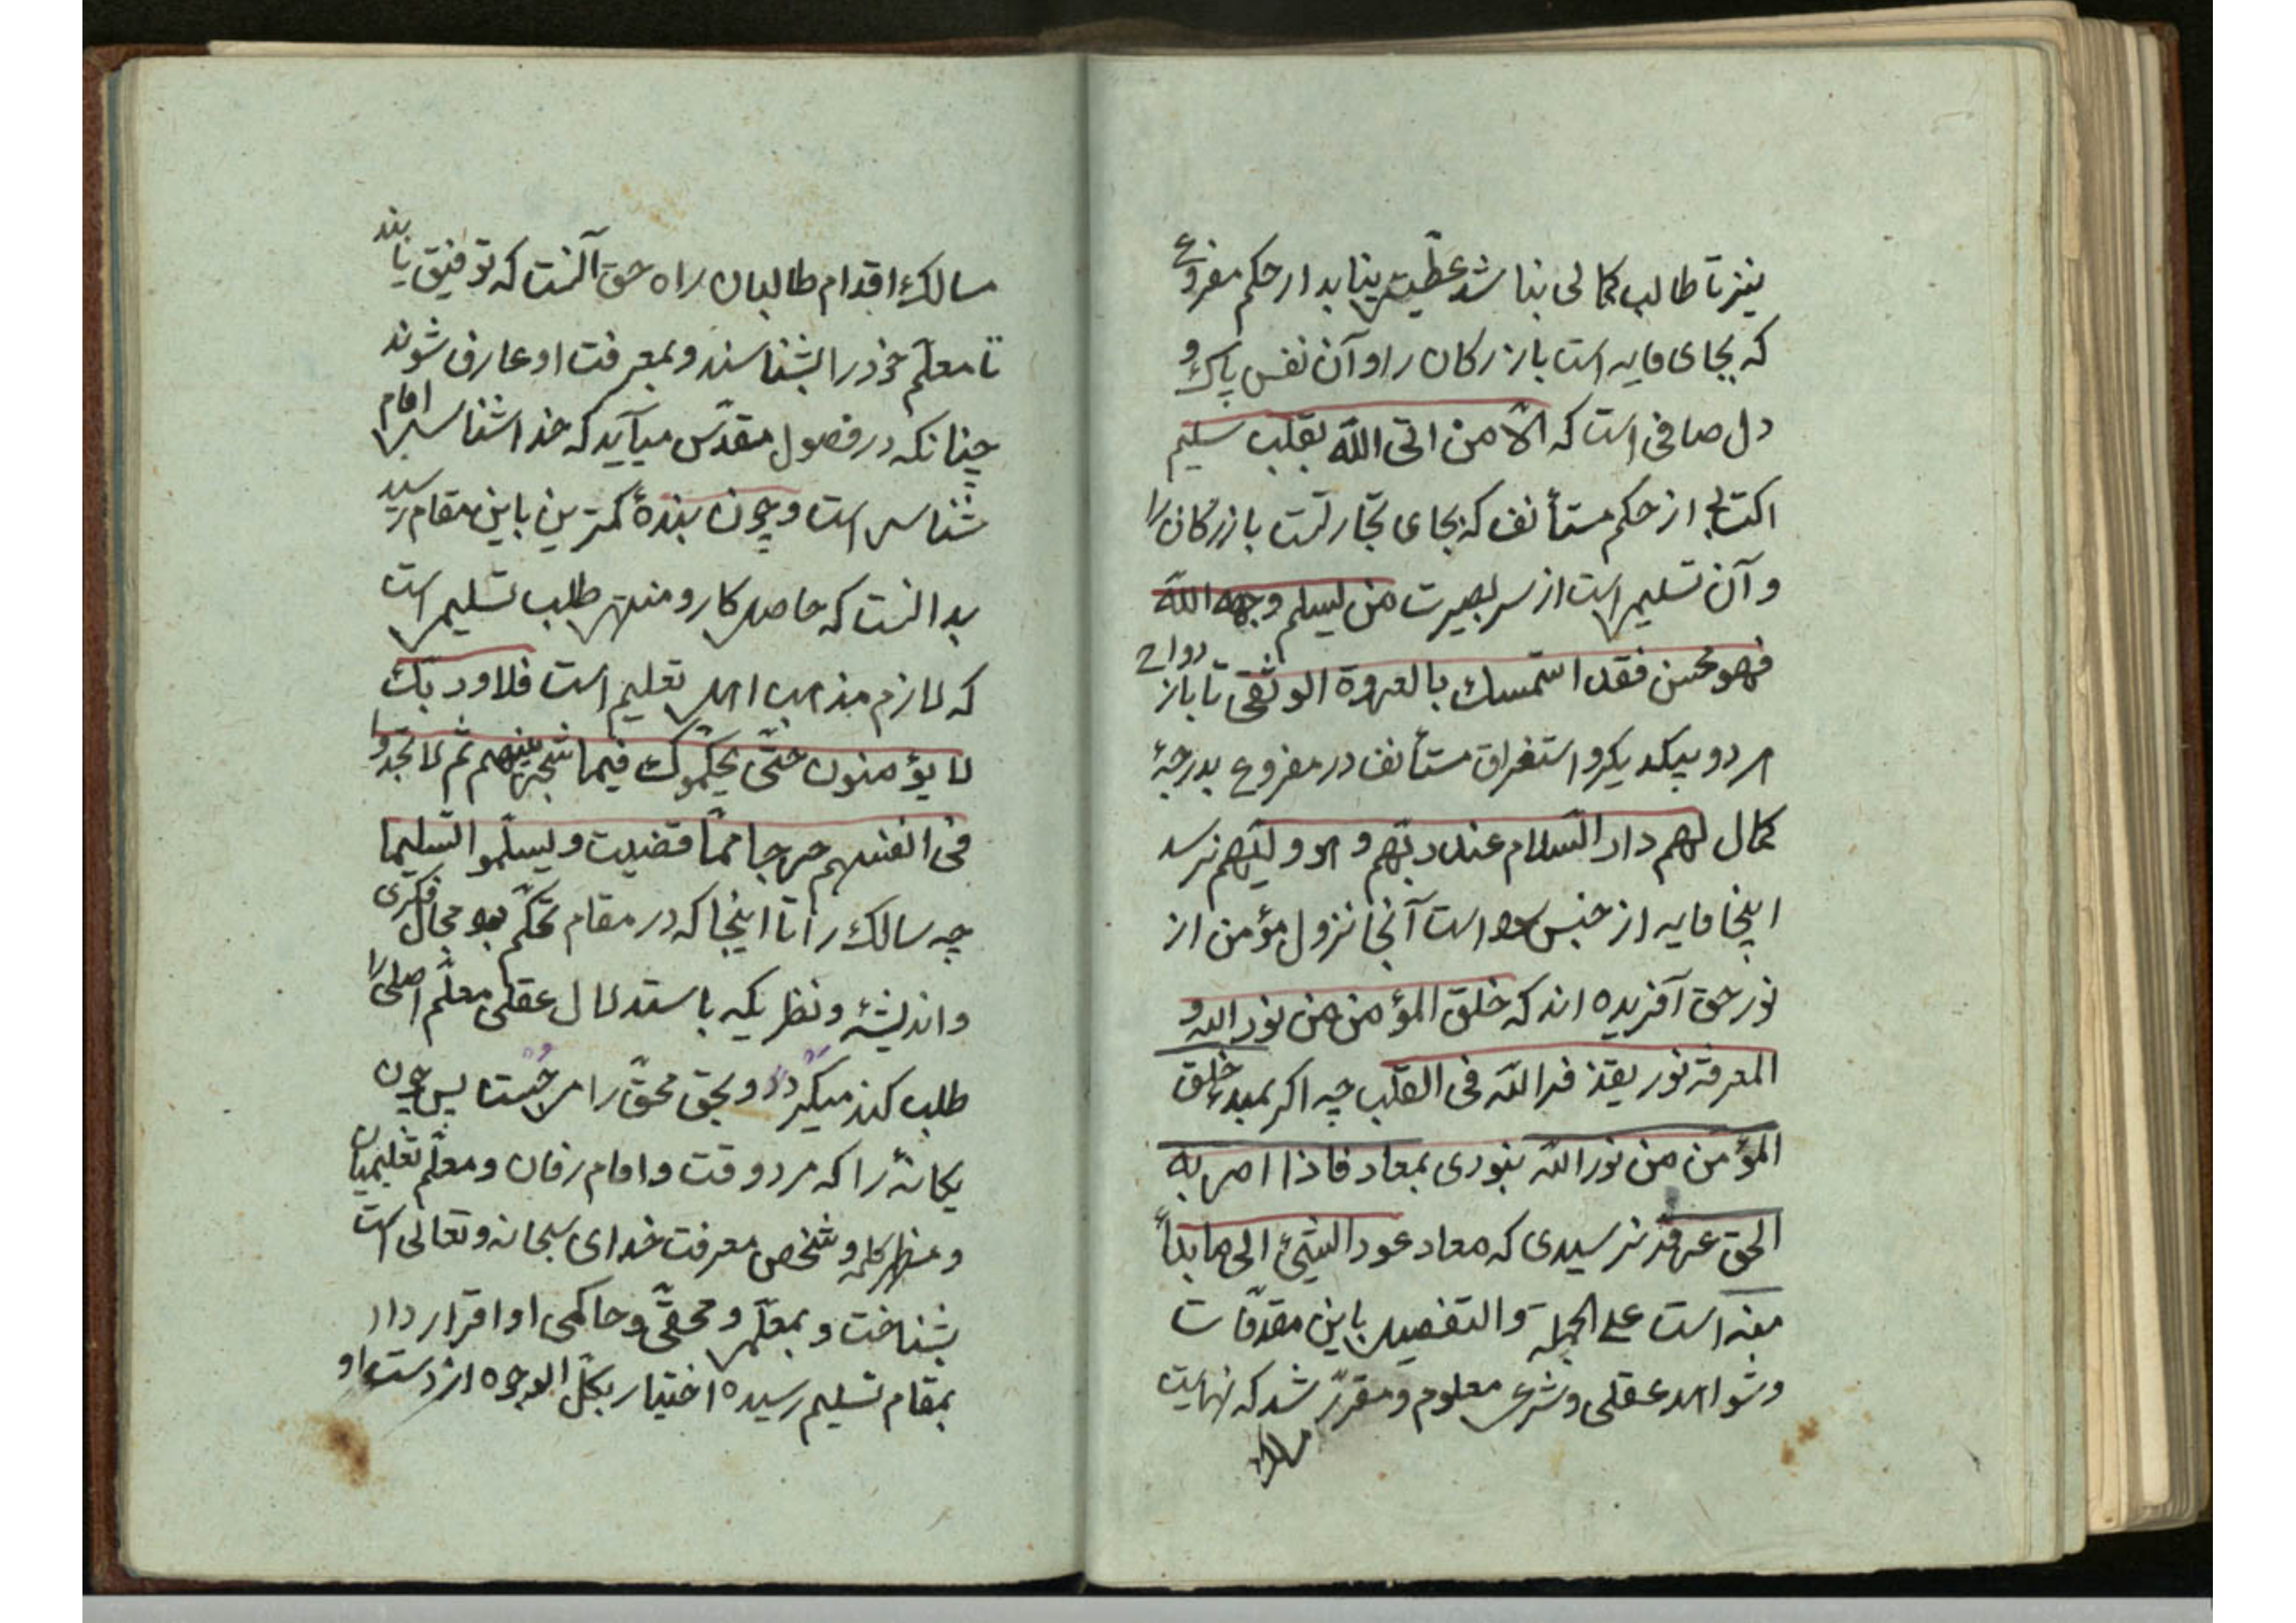 نیز تا طالب کمالی بنا شد عطیتی نیابد از حکم مفروغ
که بجای مایه است بازرکان را و آن نفس پاک و
دل صافی است که الّا من اتی اللّه بقلب سلیم
اکتسابی از حکم مستأنف که بجای تجارتست بازرکان را
و آن تسلیمی است از سر بصیرت من یسلم وجهه اللّه
فهو محسن فقد استمسك بالعروة الوثقی تا باز دواج
هر دو بیکدیکر و استغراق مستأنف در مفروغ بدرجهٔ
کمال لهم دار السّلام عند ربّهم و هو ولیّهم نرسد
اینجا مایه از جنس سود است آنجا نزول مؤمن از
نور حق آفریده اند که خلق المؤمن من نور اللّه و
المعرفة نور یقذفه اللّه فی القلب چه اکر بمبدء خلق
المؤمن من نور اللّه بنودی بمعاد فاذا امر به
الحق عرفه نرسیدی که معاد عود الشیئ الی ما بدأ
منه است علی الجملة و التفصیل باین مقدّمات
و شواهد عقلی و شرعی معلوم و مقرّر شد که نهایت
مسالك
مسالك اقدام طالبان راه حق آنست که توفیق یابند
تا معلّم خود را بشناسند و بمعرفت او عارف شوند
چنانکه در فصول مقدّس میآید که خدا شناسی امام
شناسی است و چون بندهٔ کمترین باین مقام رسید
بدانست که حاصل کار و منتهی طلب تسلیمی است
که لازم مذهب اهل تعلیم است فلا و ربك
لا یؤمنون حتّی یحکّموك فیما شجر بینهم ثم لا یجدوا
فی انفسهم حرجا ممّا قضیت و یسلّموا تسلیما
چه سالك را تا اینجا که در مقام تحکّم بود مجال فکری
و اندیشهٔ و نظریکه باستدلال عقلی معلّم اصلی را
طلب کند میکردد و بحق محقّ را میجست پس چون
یکانهٔ را که مرد وقت و امام زمان و معلّم تعلیمیان
و مظهر کلمه و شخص معرفت خدای سبحانه و تعالی است
بشناخت و بمعلّمی و محقّی و حاکمی او اقرار داد
بمقام تسلیم رسیده اختیار بکلّ الوجوه از دست او